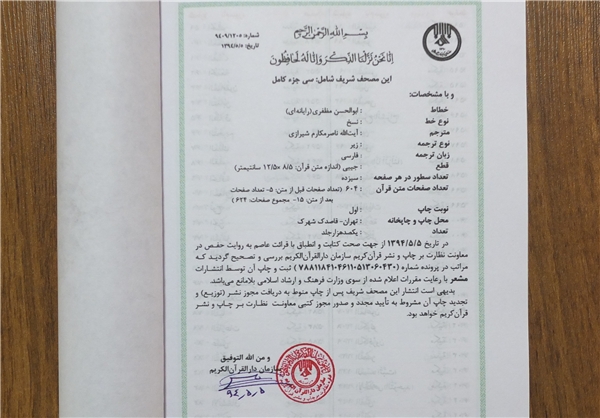 بِسْمِ اللهِ الرَّحْمٰنِ الرَّحِيمِ
شماره: ۹۴۰۹/۱۲۰۵
تاریخ: ۱۳۹۴/۵/۵
اِنّا نَحْنُ نَزَّلْنَا الذِّكْرَ وَاِنّا لَهُ لَحافِظُونَ
این مصحف شریف شامل: سی جزء کامل
و با مشخصات:
خطاط : ابوالحسن مظفری(رایانه‌ای)
نوع خط : نسخ
مترجم : آیت‌الله ناصرمکارم شیرازی
نوع ترجمه : زیر
زبان ترجمه : فارسی
قطع : جیبی (اندازه متن قرآن: ۸/۵× ۱۲/۵ سانتیمتر)
تعداد سطور در هر صفحه : سیزده
تعداد صفحات متن قرآن : ۶۰۴ (تعداد صفحات قبل از متن: ۵- تعداد صفحات
بعد از متن: ۱۵- مجموع صفحات: ۶۲۴)
نوبت چاپ : اول
محل چاپ و چاپخانه : تهران- قاصدک شهرک
تعداد : یکصدهزارجلد
در تاریخ ۱۳۹۴/۵/۵ از جهت صحت کتابت و انطباق با قرائت عاصم به روایت حفص در
معاونت نظارت بر چاپ و نشر قرآن‌کریم سازمان دارالقرآن‌الکریم بررسی و تصحیح گردید که
مراتب در پرونده شماره (۷۸۸۱۱۸۴۱-۴۶۱۱-۵۱۳-۶۰۴۳۰) ثبت و چاپ آن توسط انتشارات
مشعر با رعایت مقررات اعلام شده از سوی وزارت فرهنگ و ارشاد اسلامی بلامانع می‌باشد.
بدیهی است انتشار این مصحف شریف پس از چاپ منوط به دریافت مجوز نشر (توزیع) و
تجدید چاپ آن مشروط به تأیید مجدد و صدور مجوز کتبی معاونت نظارت بر چاپ و نشر
قرآن‌کریم خواهد بود.
و من الله التوفیق
سازمان دارالقرآن‌الکریم
۹۴،۵،۵